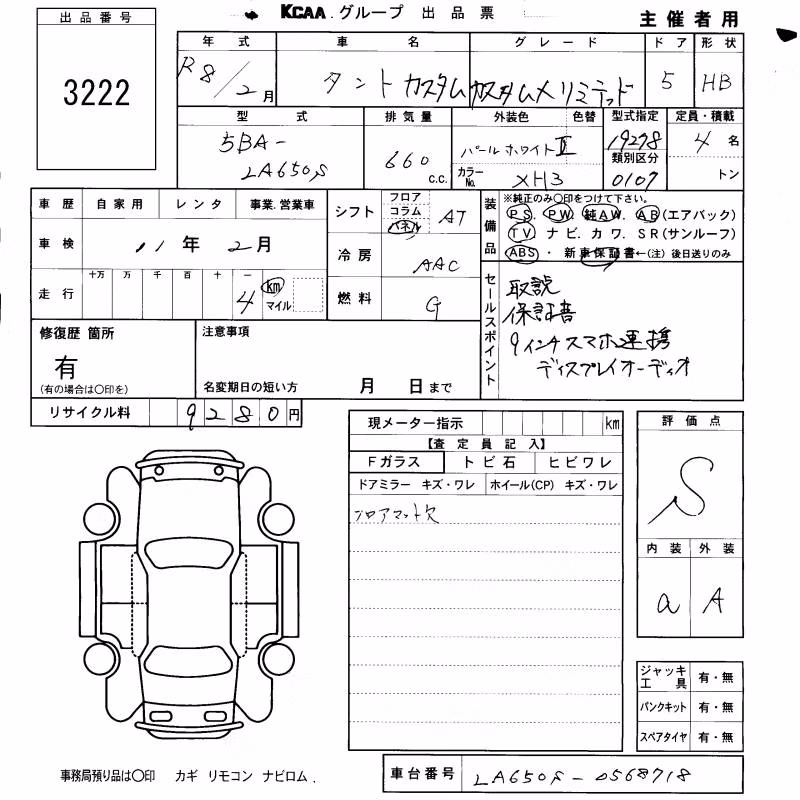 KCAA グループ 出品票
主催者用
出品番号
3222
年式 車名 グレード ドア 形状
R8/2月 タントカスタム カスタムXリミテッド 5 HB
型式 排気量 外装色 色替 型式指定 定員・積載
5BA-LA650S 660 c.c. パールホワイトIII 19278 4名
類別区分
カラーNo. XH3 0107 トン
車歴 自家用 レンタ 事業.営業車
車検 11年 2月
走行 十万 万 千 百 十 一
4 km マイル
シフト フロア コラム パネル AT
冷房 AAC
燃料 G
装備品 ※純正のみ〇印をつけて下さい。
PS. PW 純AW. AB(エアバック)
TV ナビ. カワ. SR(サンルーフ)
ABS・新車保証書←(注)後日送りのみ
セールスポイント
取説
保証書
9インチスマホ連携
ディスプレイオーディオ
修復歴 箇所
有
(有の場合は〇印を)
注意事項
名変期日の短い方 月 日まで
リサイクル料 9280円
現メーター指示 km
【査定員記入】
Fガラス トビ石 ヒビワレ
ドアミラー キズ・ワレ ホイール(CP) キズ・ワレ
フロアマット欠
評価点
S
内装 外装
a A
ジャッキ工具 有・無
パンクキット 有・無
スペアタイヤ 有・無
事務局預り品は〇印 カギ リモコン ナビロム.
車台番号 LA650S-0568718